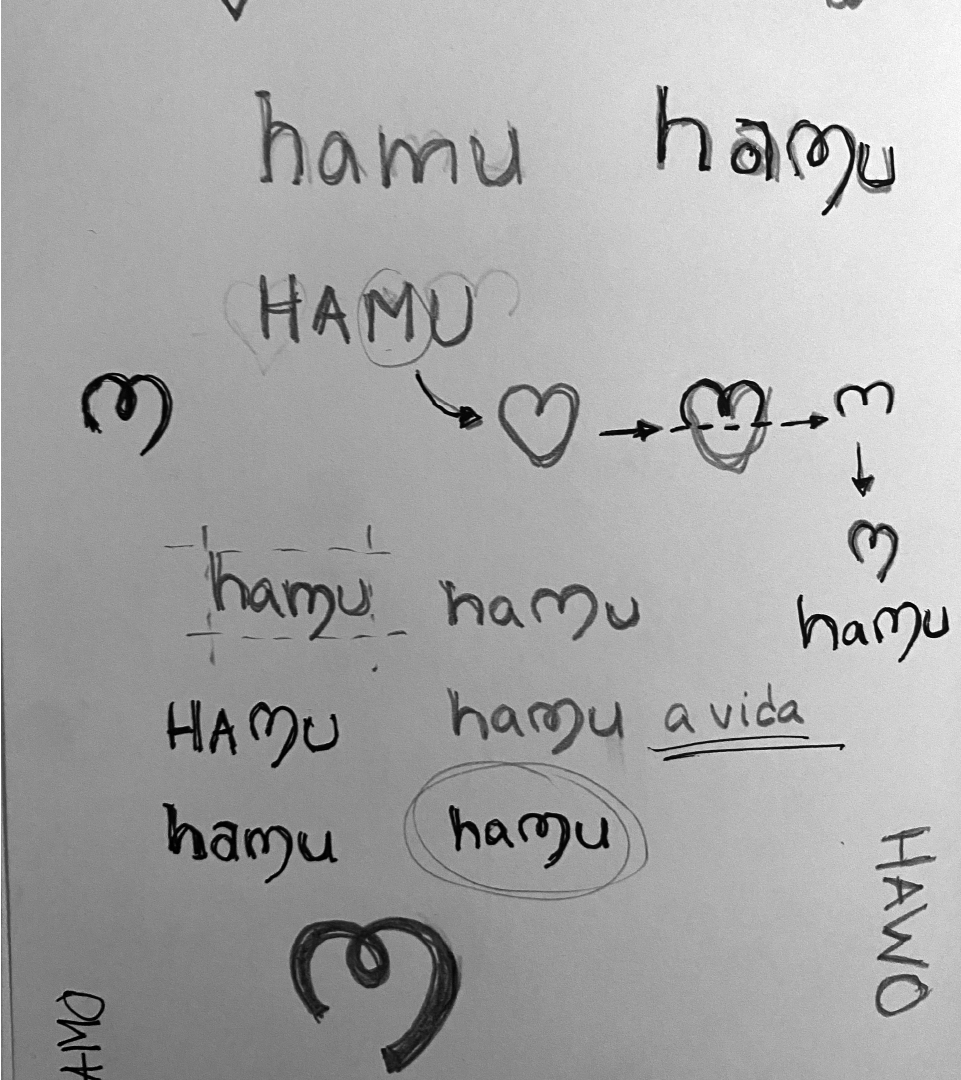 hamu hamu
HAMU
m
m
m
hamu hamu hamu
HAMU hamu a vida
hamu hamu
m
HAWO
AMO